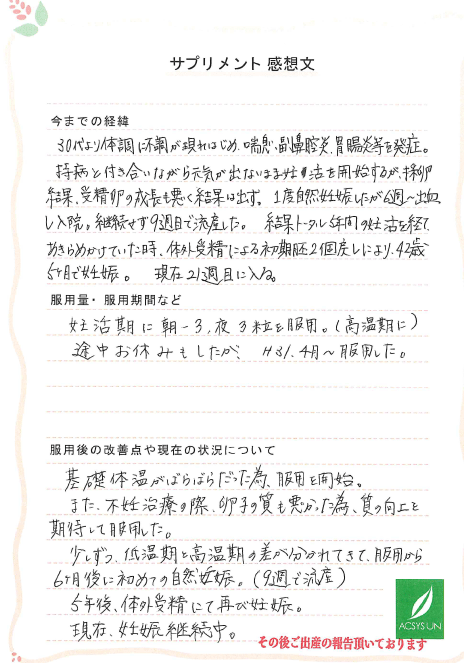 サプリメント 感想文
今までの経緯
30代より体調に不調が現れはじめ、喘息、副鼻腔炎、胃腸炎等を発症。
持病と付き合いながら元気が出ないまま妊活を開始するが、採卵
結果、受精卵の成長も悪く結果は出ず。1度自然妊娠したが6週〜出血
し入院。継続せず9週目で流産した。 結果トータル5年間の妊活を経て
あきらめかけていた時、体外受精による初期胚2個戻しにより、42歳
5ヶ月で妊娠。 現在21週目に入る。
服用量・服用期間など
妊活期に朝-3、夜3粒を服用。(高温期に)
途中お休みもしたが、 H31.4月〜服用した。
服用後の改善点や現在の状況について
基礎体温がばらばらだった為、服用を開始。
また、不妊治療の際、卵子の質も悪かった為、質の向上を
期待して服用した。
少しずつ、低温期と高温期の差が分かれてきて、服用から
6ヶ月後に初めての自然妊娠。(9週で流産)
5年後、体外受精にて再び妊娠。
現在、妊娠継続中。
ACSYSUN
その後ご出産の報告頂いております